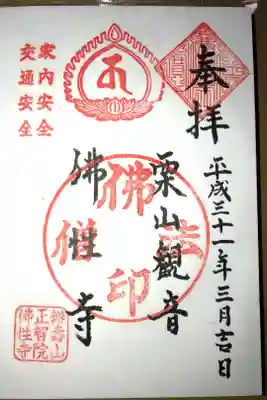 奉拝
平成三十一年三月吉日
栗山觀音
佛性寺
家内安全
交通安全
佛法僧印
正智院
佛性寺